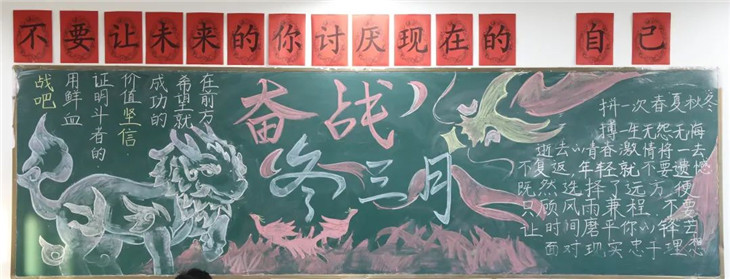 不要让未来的你讨厌现在的 自己
战吧
用鲜血
证明斗者的
价值坚信
成功的
希望就
在前方
奋战
冬三月
抖一次春夏秋冬
搏一生无怨无悔
逝去心青春激情将一去
不复返,年轻就不要遗憾
既然选择了远方,便
只顾风雨兼程.不要
让时间磨平你心锋去
面对现实忠于理想